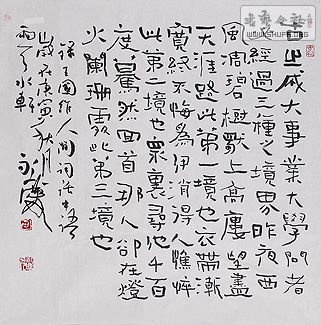 古之成大事業大學問者
經過三種之境界昨夜西
風凋碧樹獨上高樓望盡
天涯路此第一境也衣帶漸
寬終不悔為伊消得人憔悴
此第二境也衆裏尋他千百
度驀然回首那人卻在燈
火闌珊處此第三境也
王國維人間詞話
歲在庚寅秋月
水軒